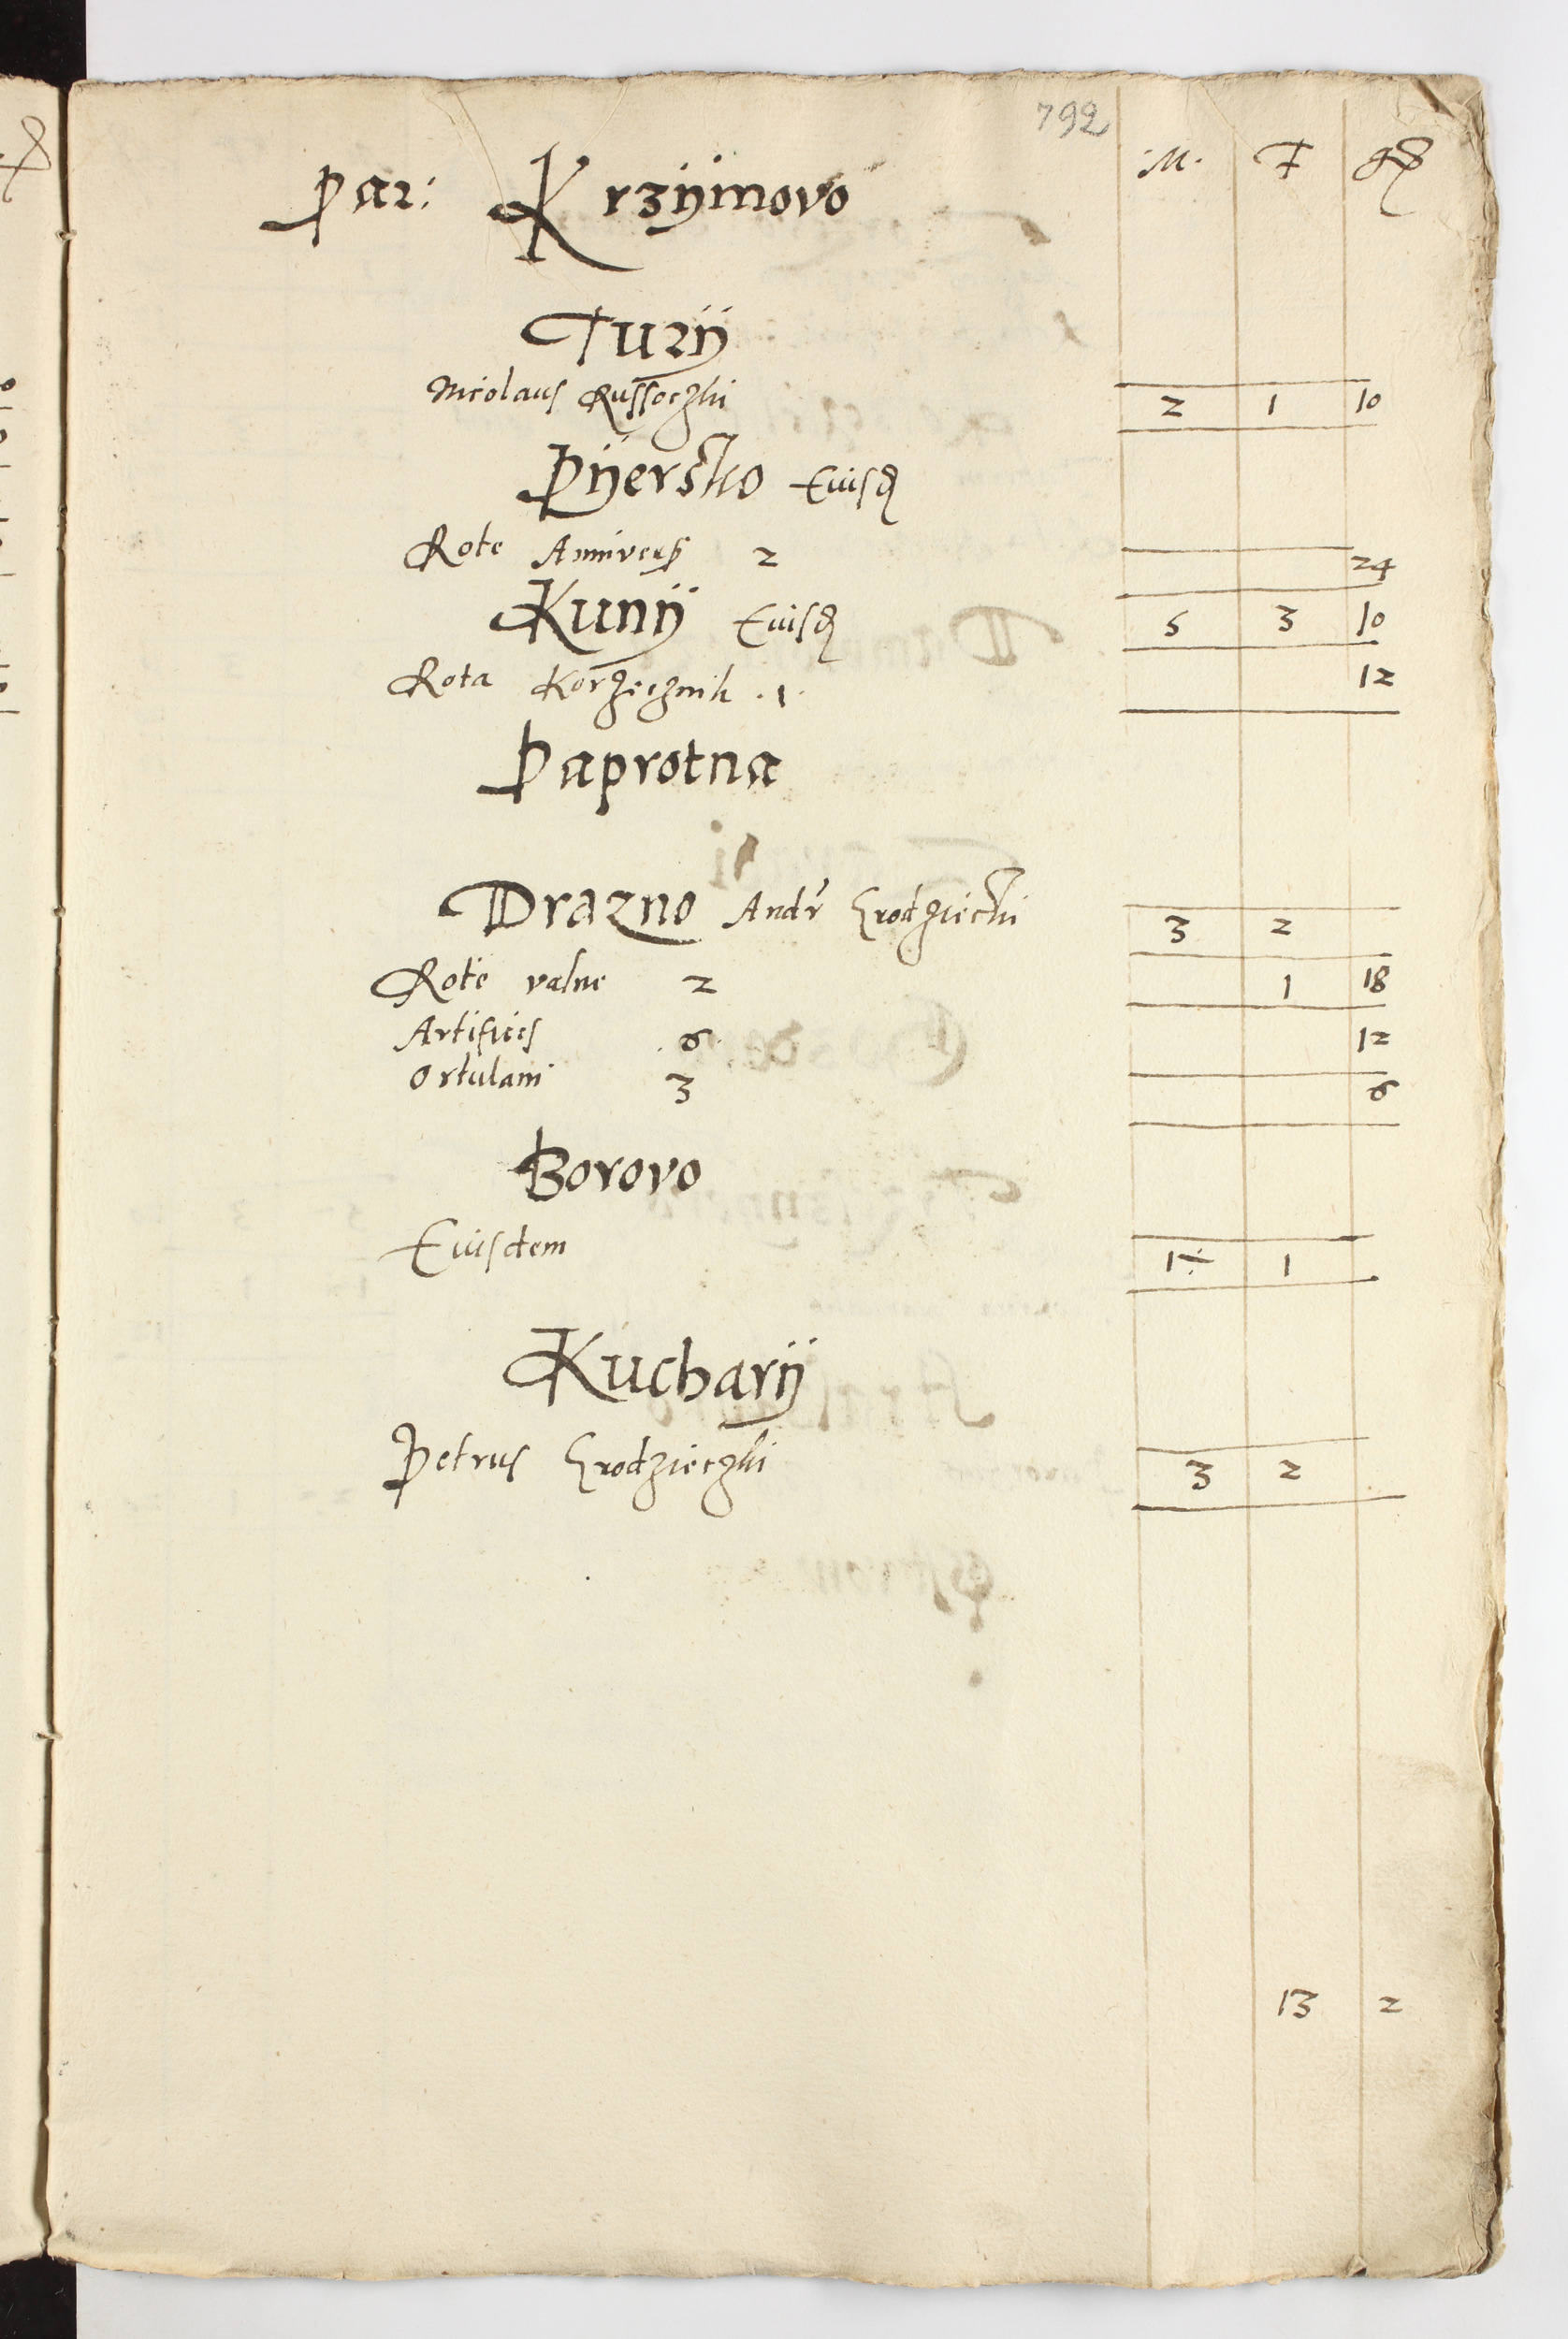 792
M. F gr
Par: Krzÿmovo
Turÿ
Nicolaus Russoczki 2 1 10
Pÿersko Euisd
Rote Annivers 2 24
Kunÿ Euisd 5 3 10
Rota Korzecznik .1. 12
Paprotna
Drazno Andr Grodziecki 3 2
Rote valne 2 1 18
Artifices .6. 12
Ortulani 3 6
Borovo
Eiusdem 1÷ 1
Kucharÿ
Petrus Grodzieczki 3 2
13 2